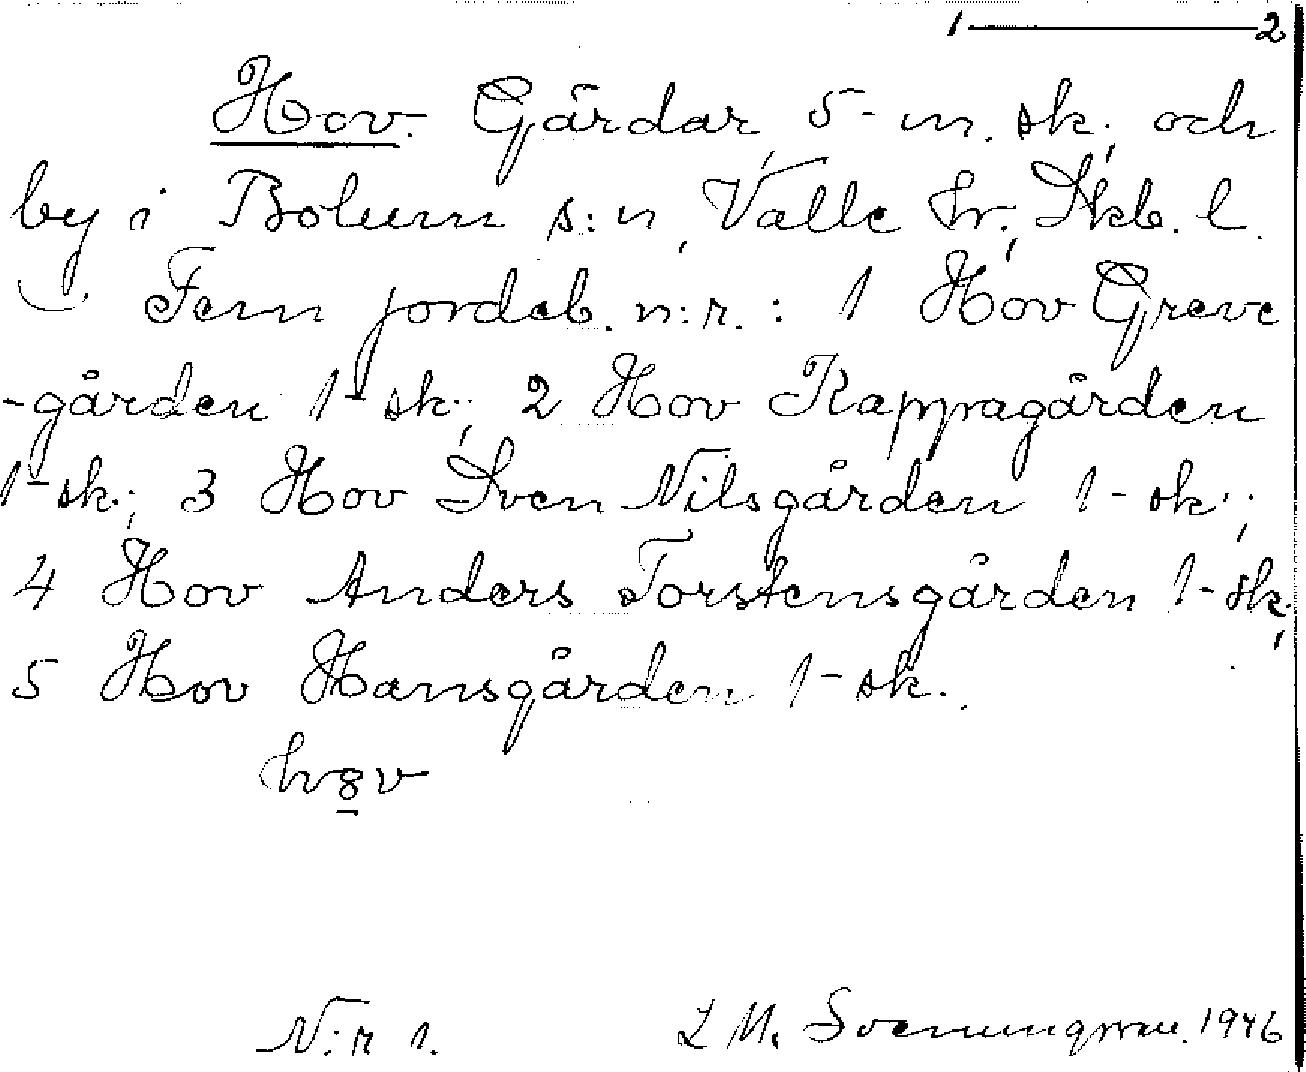 1 — 2
Hov. Gårdar, 5- m. sk., och
by i Bolum s:n, Valle hr, Skb. l.
Fem jordeb. n:r. : 1 Hov Greve
-gården 1- sk.; 2 Hov Kappagården
1- sk.; 3 Hov Sven Nilsgården 1- sk.;
4 Hov Anders Torstensgården 1- sk.,
5 Hov Hansgården 1- sk..
N:r 1. L M. Svenungsson. 1946